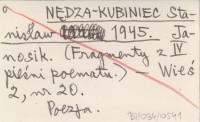 NĘDZA-KUBINIEC Sta-
nisław 1945. Ja-
nosik. (Fragmenty z IV
pieśni poematu.) — Wieś
2, nr 20.
Poezja.